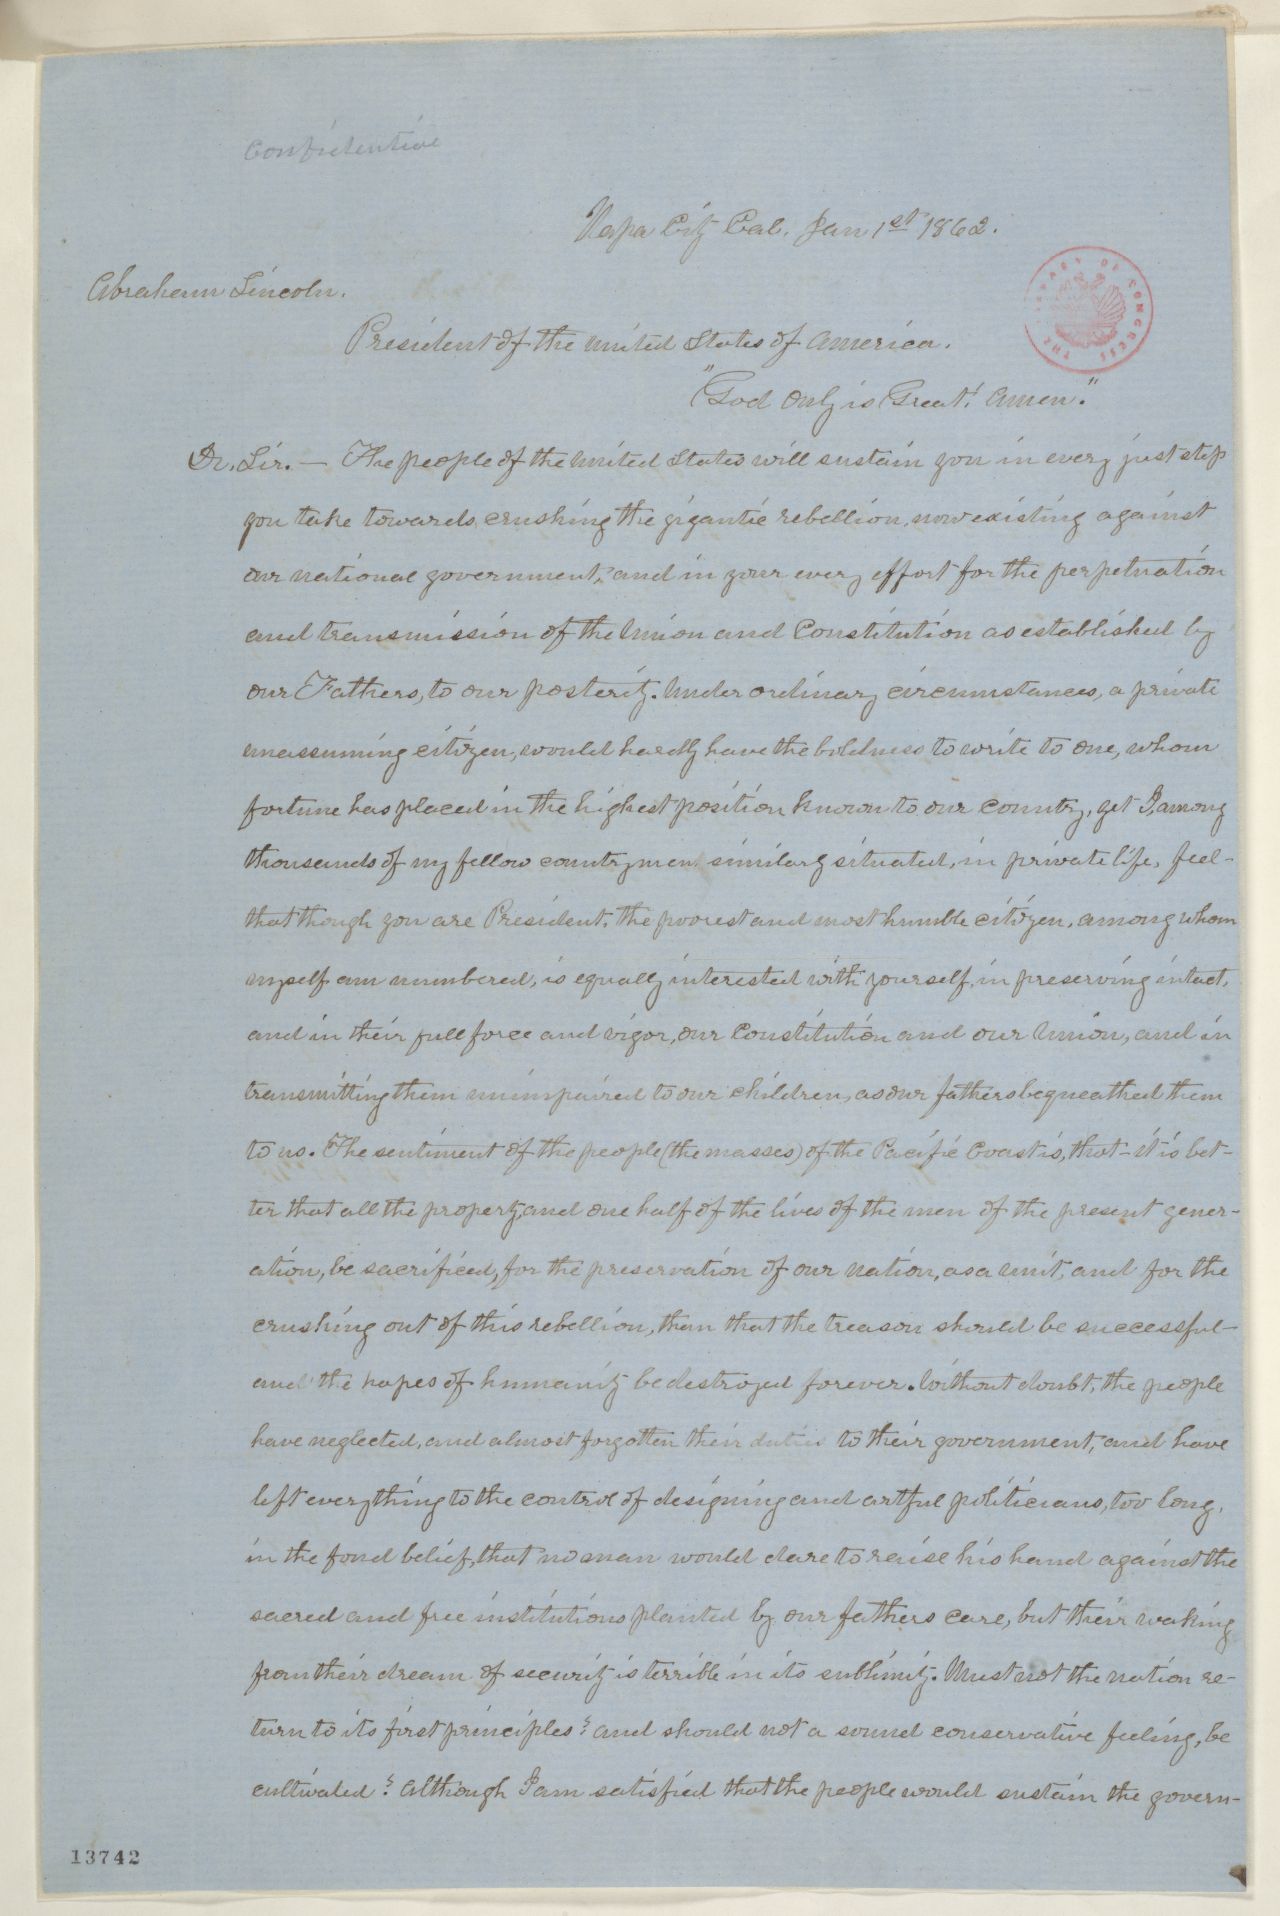 Confidential
Napa City Cal. Jan 1st 1862.
Abraham Lincoln.
THE LIBRARY OF CONGRESS
President of the United States of America.
"God only is Great! Amen."
Dr. Sir. — The people of the United States will sustain you in every just step
you take towards crushing the gigantic rebellion, now existing against
our national government, and in your every effort for the perpetuation
and transmission of the Union and Constitution as established by
our Fathers, to our posterity. Under ordinary circumstances, a private
unassuming citizen, would hardly have the boldness to write to one, whom
fortune has placed in the highest position known to our country, yet I, among
thousands of my fellow countrymen similarly situated, in private life, feel-
that though you are President, the poorest and most humble citizen, among whom
myself am numbered, is equally interested with yourself, in preserving intact,
and in their full force and vigor, our Constitution and our Union, and in
transmitting them unimpaired to our children, as our fathers bequeathed them
to us. The sentiment of the people (the masses) of the Pacific Coast is, that - it is bet-
ter that all the property, and one half of the lives of the men of the present gener-
ation, be sacrificed, for the preservation of our nation, as a unit, and for the
crushing out of this rebellion, than that the treason should be successful-
and the hopes of humanity be destroyed forever. Without doubt, the people
have neglected, and almost forgotten their duties to their government, and have
left everything to the control of designing and artful politicians, too long,
in the fond belief, that no man would dare to raise his hand against the
sacred and free institutions planted by our fathers care, but their waking
from their dream of security is terrible in its sublimity. Must not the nation re-
turn to its first principles? and should not a sound conservative feeling, be
cultivated? Although I am satisfied that the people would sustain the govern-
13742